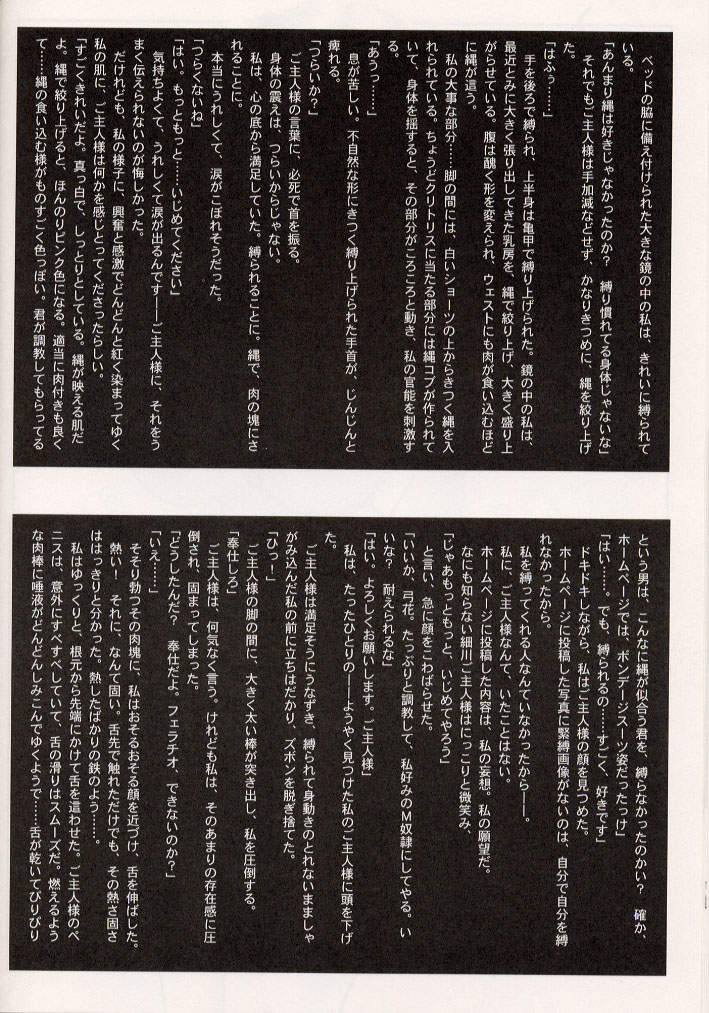 ベッドの脇に備え付けられた大きな鏡の中の私は、きれいに縛られて
いる。
「あんまり縄は好きじゃなかったのか？　縛り慣れてる身体じゃないな」
それでもご主人様は手加減などせず、かなりきつめに、縄を絞り上げ
た。
「はふぅ……」
手を後ろで縛られ、上半身は亀甲で縛り上げられた。鏡の中の私は、
最近とみに大きく張り出してきた乳房を、縄で絞り上げ、大きく盛り上
がらせている。腹は醜く形を変えられ、ウェストにも肉が食い込むほど
に縄が這う。
私の大事な部分……脚の間には、白いショーツの上からきつく縄を入
れられている。ちょうどクリトリスに当たる部分には縄コブが作られて
いて、身体を揺すると、その部分がころころと動き、私の官能を刺激す
る。
「あうっ……」
息が苦しい。不自然な形にきつく縛り上げられた手首が、じんじんと
痺れる。
「つらいか？」
ご主人様の言葉に、必死で首を振る。
身体の震えは、つらいからじゃない。
私は、心の底から満足していた。縛られることに。縄で、肉の塊にさ
れることに。
本当にうれしくて、涙がこぼれそうだった。
「つらくないね」
「はい。もっともっと……いじめてください」
気持ちよくて、うれしくて涙が出るんです――ご主人様に、それをう
まく伝えられないのが悔しかった。
だけれども、私の様子に、興奮と感激でどんどんと紅く染まってゆく
私の肌に、ご主人様は何かを感じとってくださったらしい。
「すごくきれいだよ。真っ白で、しっとりとしている。縄が映える肌だ
よ。縄で絞り上げると、ほんのりピンク色になる。適当に肉付きも良く
て……縄の食い込む様がものすごく色っぽい。君が調教してもらってる
という男は、こんなに縄が似合う君を、縛らなかったのかい？　確か、
ホームページでは、ボンデージスーツ姿だったっけ」
「はい……。でも、縛られるの……すごく、好きです」
ドキドキしながら、私はご主人様の顔を見つめた。
ホームページに投稿した写真に緊縛画像がないのは、自分で自分を縛
れなかったから。
私を縛ってくれる人なんていなかったから――。
私に、ご主人様なんて、いたことはない。
ホームページに投稿した内容は、私の妄想。私の願望だ。
なにも知らない細川ご主人様はにっこりと微笑み、
「じゃあもっともっと、いじめてやろう」
と言い、急に顔をこわばらせた。
「いいか、弓花。たっぷりと調教して、私好みのM奴隷にしてやる。い
いな？　耐えられるな」
「はい。よろしくお願いします。ご主人様」
私は、たったひとりの――ようやく見つけた私のご主人様に頭を下げ
た。
ご主人様は満足そうにうなずき、縛られて身動きのとれないまましゃ
がみ込んだ私の前に立ちはだかり、ズボンを脱ぎ捨てた。
「ひっ！」
ご主人様の脚の間に、大きく太い棒が突き出し、私を圧倒する。
「奉仕しろ」
ご主人様は、何気なく言う。けれども私は、そのあまりの存在感に圧
倒され、固まってしまった。
「どうしたんだ？　奉仕だよ。フェラチオ、できないのか？」
「いえ……」
そそり勃つその肉塊に、私はおそるおそる顔を近づけ、舌を伸ばした。
熱い！　それに、なんて固い。舌先で触れただけでも、その熱さ固さ
ははっきりと分かった。熱したばかりの鉄のよう……。
私はゆっくりと、根元から先端にかけて舌を這わせた。ご主人様のペ
ニスは、意外にすべすべしていて、舌の滑りはスムーズだ。燃えるよう
な肉棒に唾液がどんどんしみこんでゆくようで……舌が乾いてぴりぴり